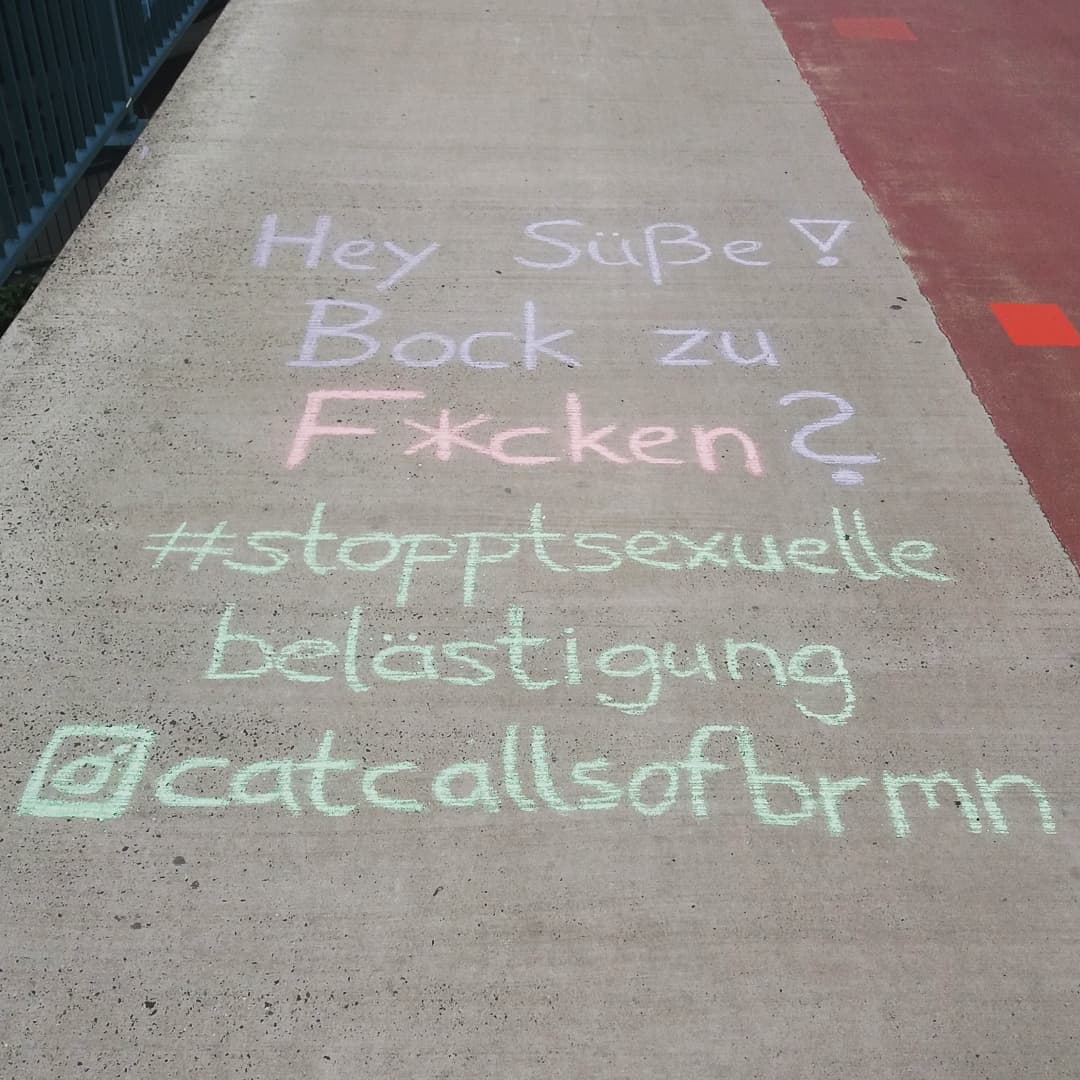 Hey Süße!
Bock zu
F*cken?
#stopptsexuelle
belästigung
@catcallsofbrmn